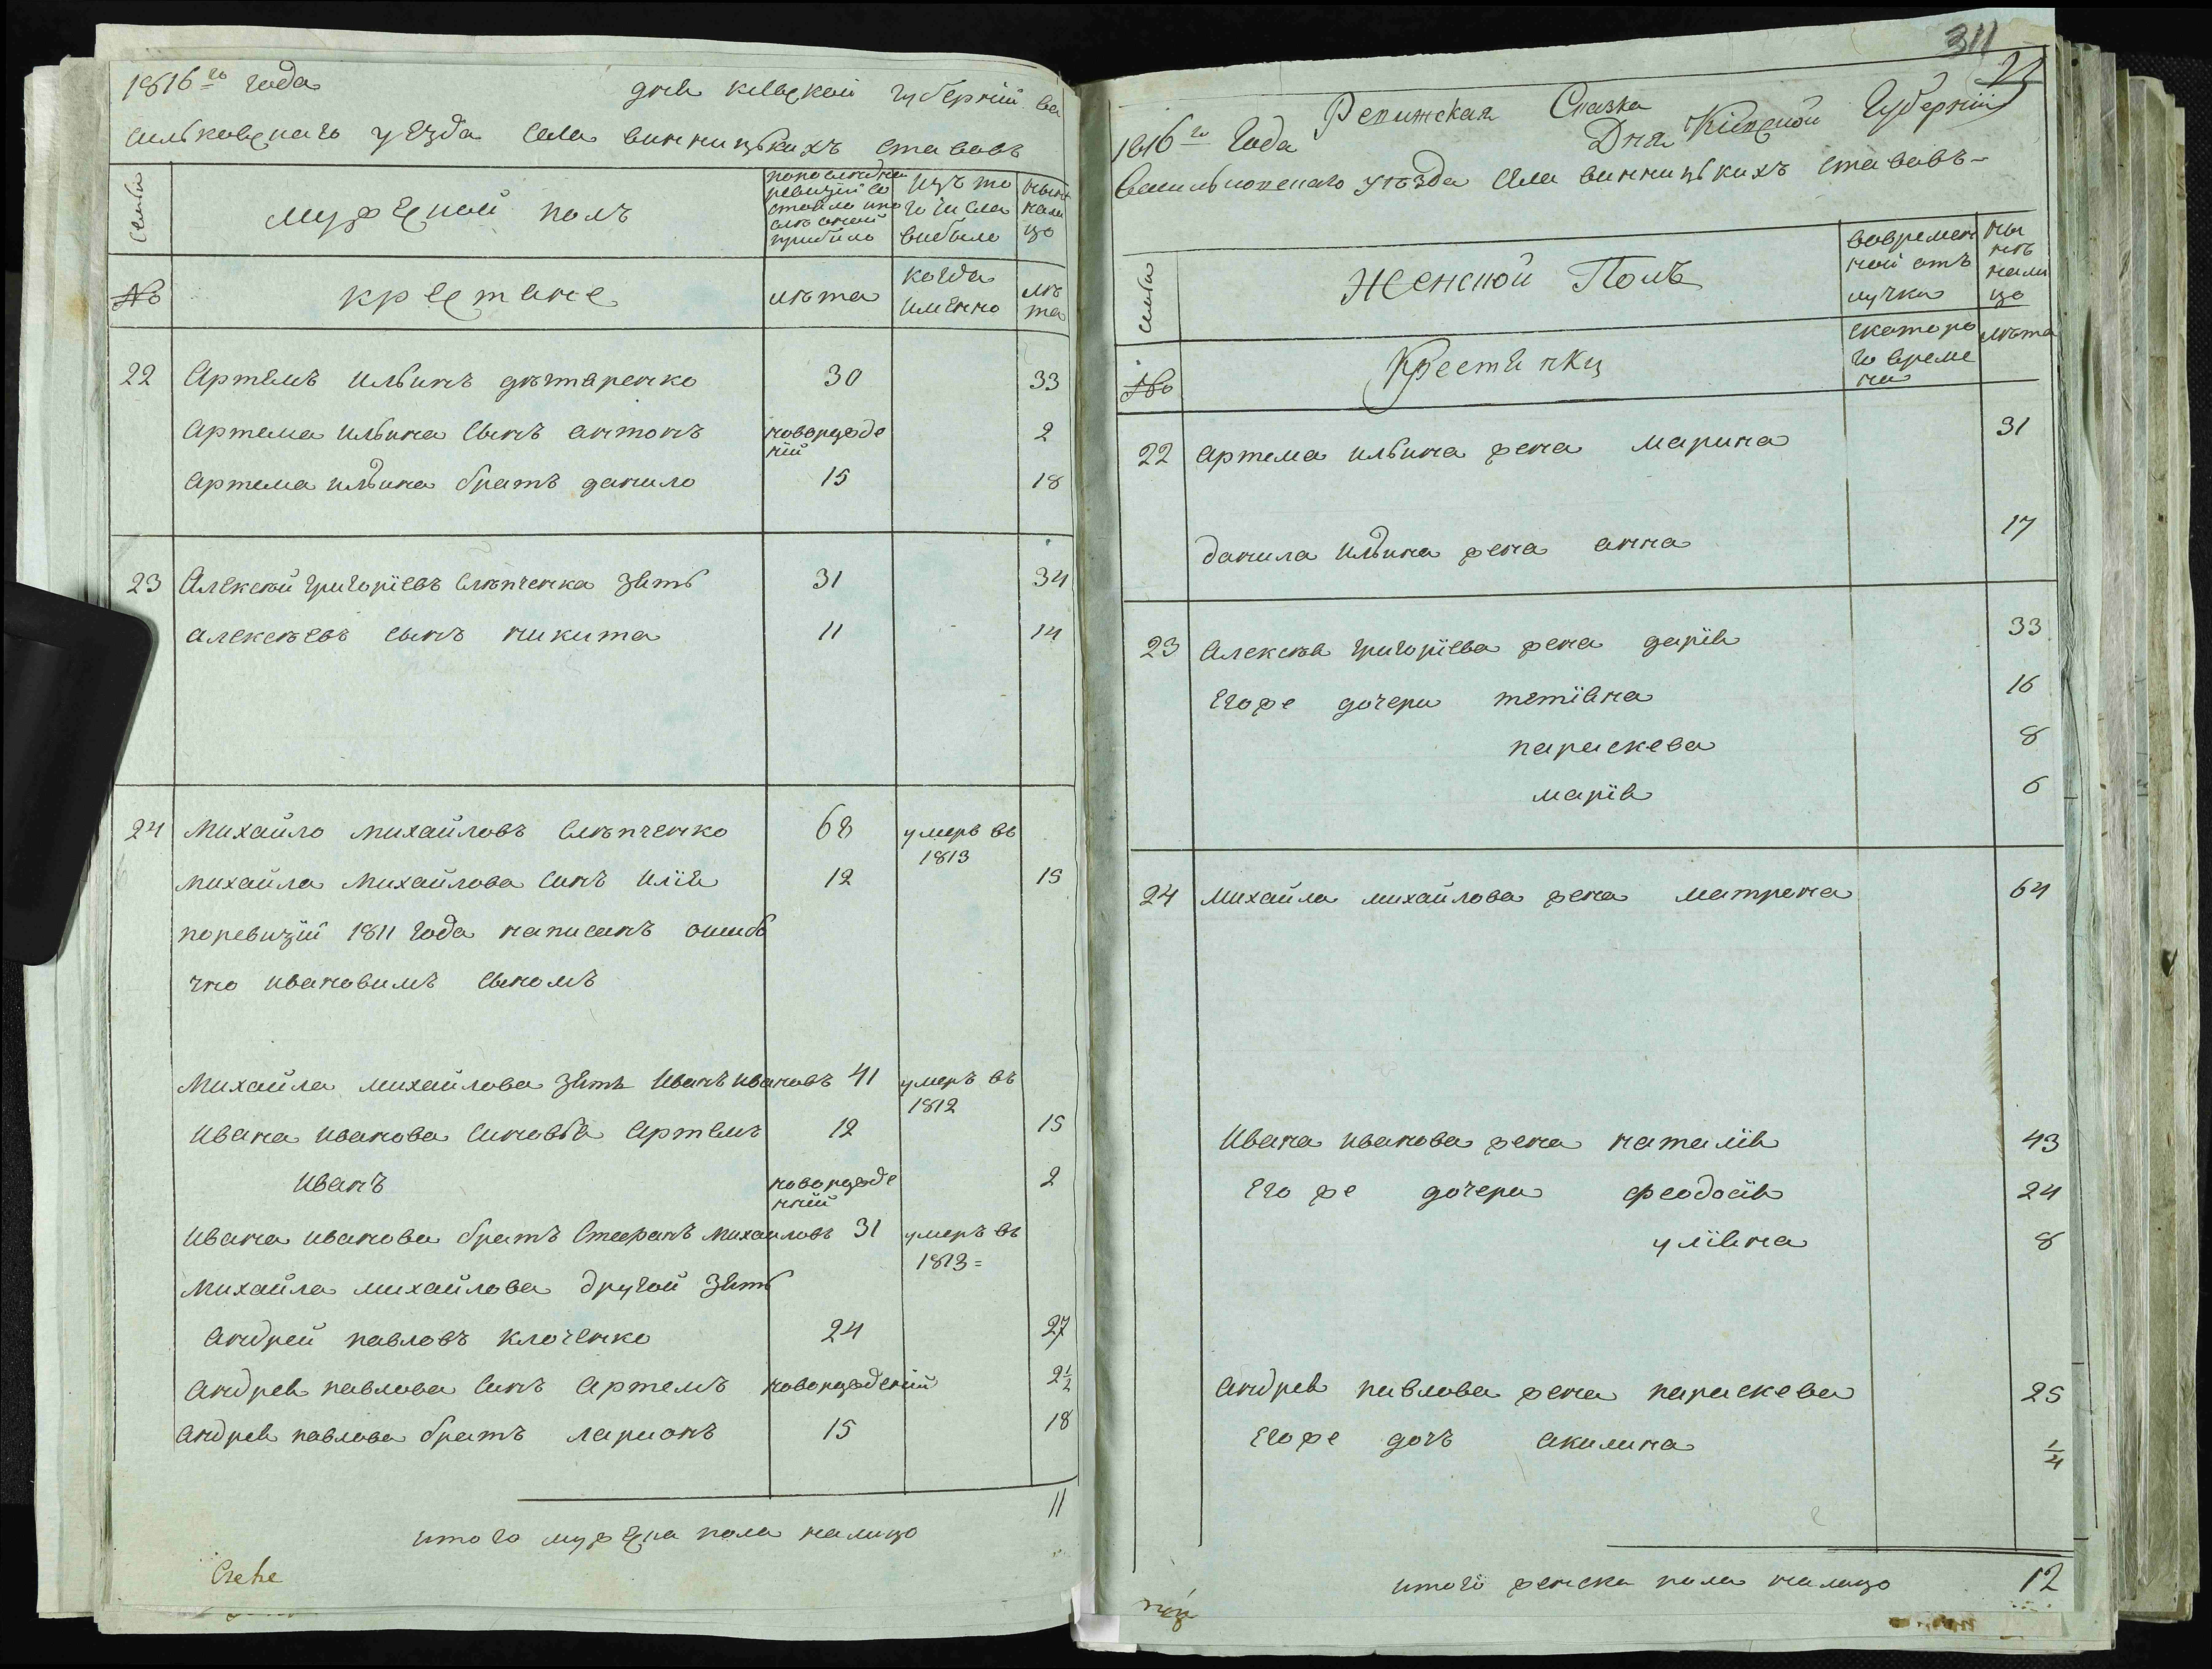 1816го года дня кіевской губерніи ва
сильковскаго уезда села винницькихъ ставовъ
семьи
мужеской полъ
по последней
ревизіи со
стояло и по
сле оной
прибыло
изъ то
го числа
выбыло
ныне
на ли
цо
№
крестяне
лѣта
когда
именно
лѣ
та
22 Артемъ ильинъ дѣхтяренко 30 33
артема ильина сынъ антонъ новорожде
ній 2
артема ильина братъ данило 15 18
23 Алексѣй григоріевъ слѣпченка зять 31 34
алексѣевъ сынъ никита 11 14
24 Михайло михайловъ слѣпченко 68 умеръ въ
1813
михайла михайлова синъ илія 12 15
по ревизій 1811 года написанъ ошибо
чно ивановимъ сыномъ
Михайла михайлова зять иванъ ивановъ 41 умеръ въ
1812
ивана иванова синовья артемъ 12 15
иванъ новорожде
нній 2
ивана иванова братъ стефанъ михаиловъ 31 умеръ въ
1813=
михайла михайлова другой зять
андрей павловъ клоченко 24 27
андрея павлова синъ артемъ новорожденій 2 1/2
андрея павлова братъ ларионъ 15 18
11
итого мужеска пола налицо
311
Ревижская Сказка
1816го Года Дня Кіевской Губерніи
Васильковскаго уѣзда села винницькихъ ставовъ-
семьи
Женской Полъ
во времен
ной отъ
лучки
ны
нѣ
на ли
цо
№
Крестянки
с котора
го време
ни
лѣта
22 артема ильина жена марина 31
данила ильина жена анна 17
23 алексѣя григоріева жена дарія 33
его же дочери тетіяна 16
параскева 8
марія 6
24 михайла михайлова жена матрена 64
ивана иванова жена наталія 43
его же дочери феодосія 24
уліяна 8
андрея павлова жена параскева 25
его же дочъ акилина 1/4
итого женска пола налицо 12